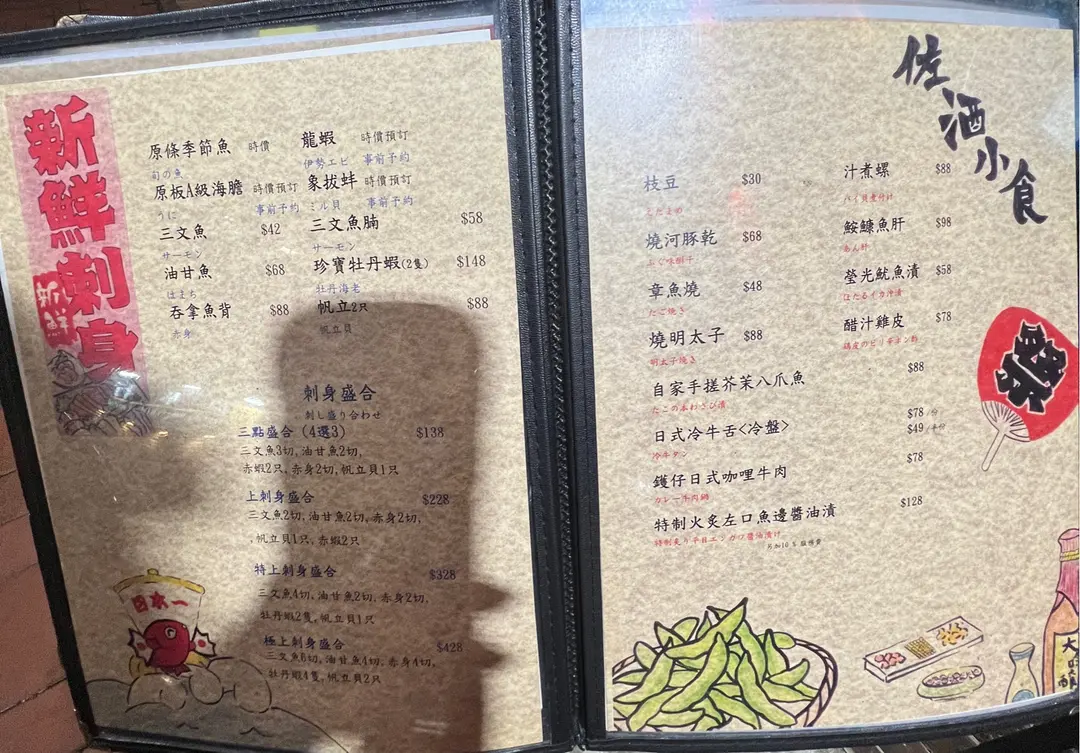 新鮮刺身
新鮮
原條季節魚 時價
旬の魚
原板A級海膽 時價預訂
うに 事前予約
三文魚 $42
サーモン
油甘魚 $68
はまち
吞拿魚背 $88
赤身
龍蝦 時價預訂
伊勢エビ 事前予約
象拔蚌 時價預訂
ミル貝 事前予約
三文魚腩 $58
サーモン
珍寶牡丹蝦(2隻) $148
牡丹海老
帆立2只 $88
帆立貝
刺身盛合
刺し盛り合わせ
三點盛合 (4選3) $138
三文魚3切, 油甘魚2切,
赤蝦2只, 赤身2切, 帆立貝1只
上刺身盛合 $228
三文魚2切, 油甘魚2切, 赤身2切,
, 帆立貝1只, 赤蝦2只
特上刺身盛合 $328
三文魚4切, 油甘魚2切, 赤身2切,
牡丹蝦2隻, 帆立貝1只
極上刺身盛合 $428
三文魚6切, 油甘魚4切, 赤身4切,
牡丹蝦4隻, 帆立貝2只
日本一
佐酒小食
枝豆 $30
えだまめ
燒河豚乾 $68
ふぐ味醂干
章魚燒 $48
たこ焼き
燒明太子 $88
明太子焼き
汁煮螺 $88
バイ貝煮付け
鮟鱇魚肝 $98
あん肝
瑩光魷魚漬 $58
ほたるイカ汁漬
醋汁雞皮 $78
鶏皮のピリ辛ポン酢
自家手搓芥茉八爪魚 $88
たこの本わさび漬
日式冷牛舌<冷盤> $78 /份
$49 /半份
冷牛タン
鑊仔日式咖哩牛肉 $78
カレー牛肉鍋
特制火炙左口魚邊醬油漬 $128
特制炙り平目エンガワ醬油漬け
另加10％服務費
大